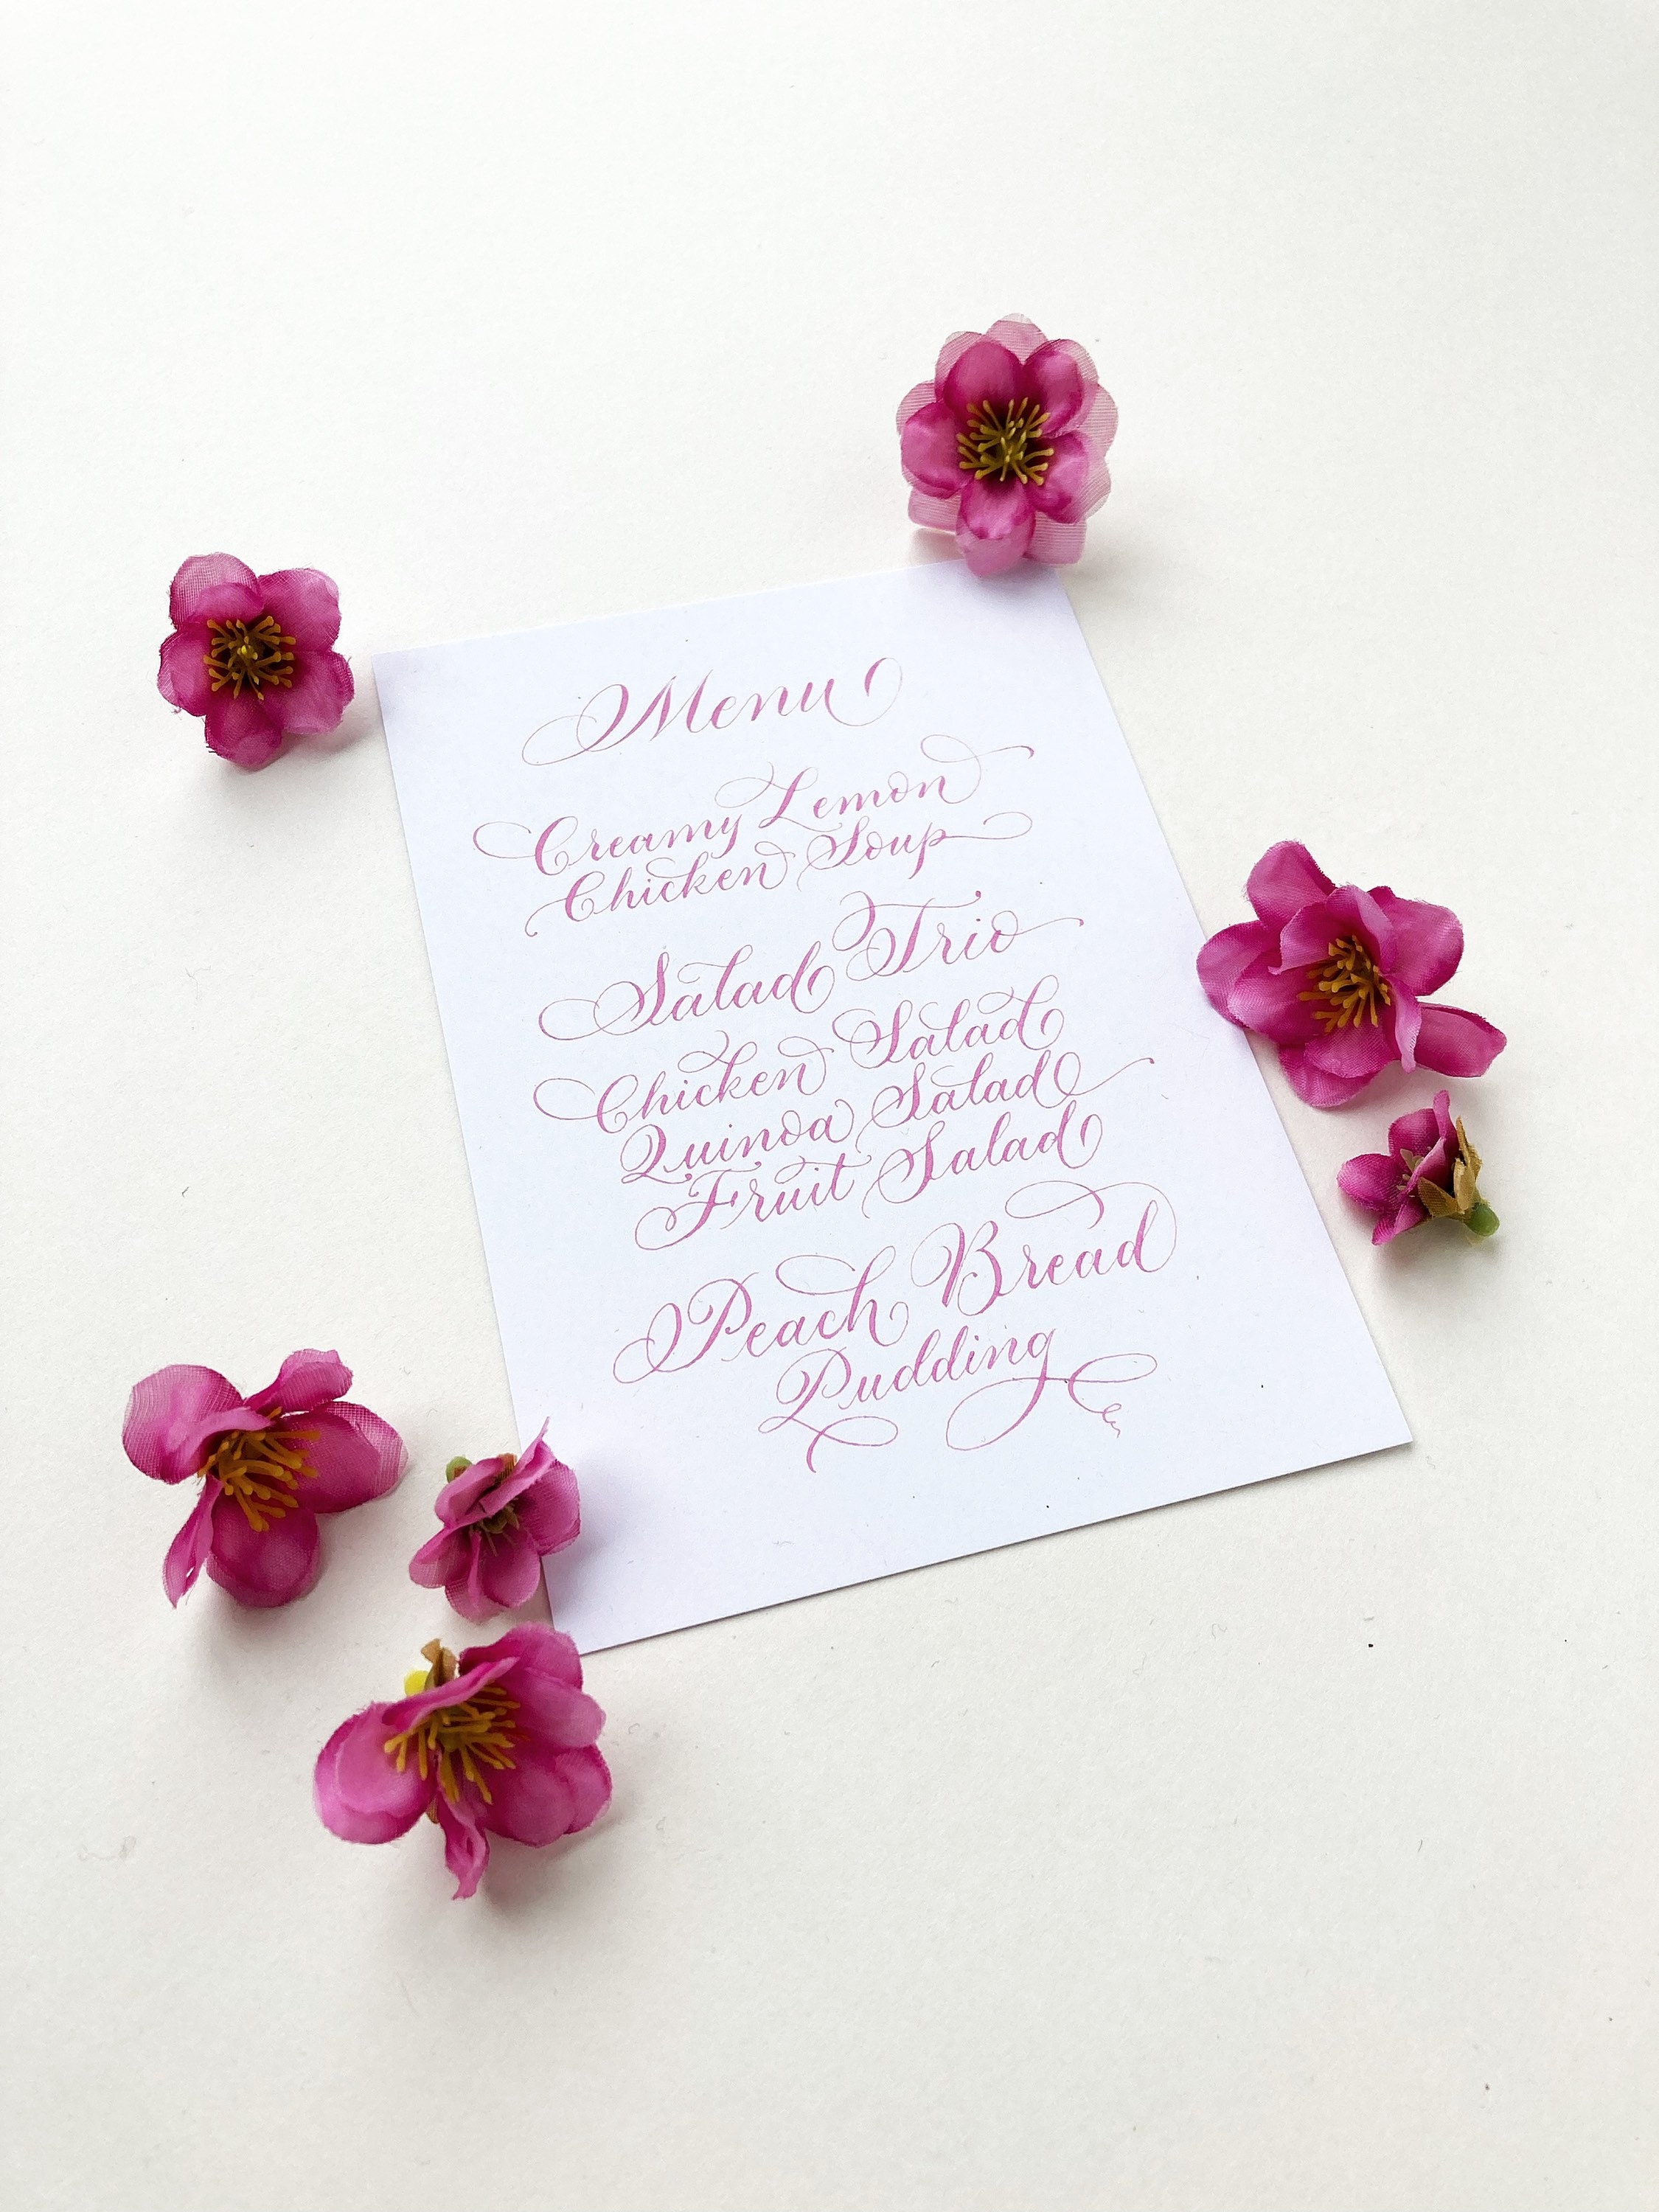 Menu
Creamy Lemon
Chicken Soup
Salad Trio
Chicken Salad
Quinoa Salad
Fruit Salad
Peach Bread
Pudding